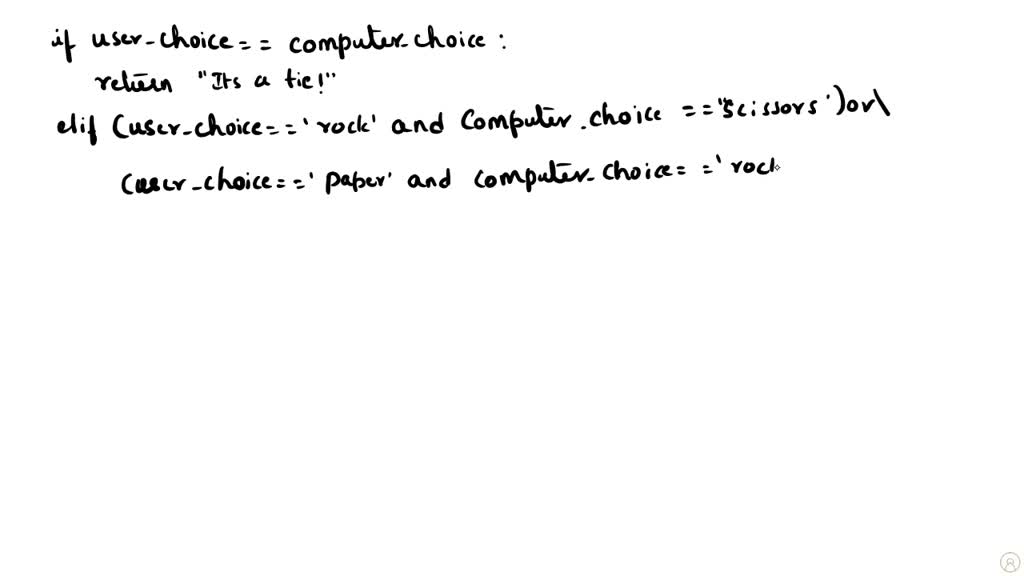 if user_choice == computer_choice :
return "Its a tie!"
elif (user_choice == 'rock' and computer_choice == "scissors')or\
(user_choice == 'paper' and computer_choice == 'rock